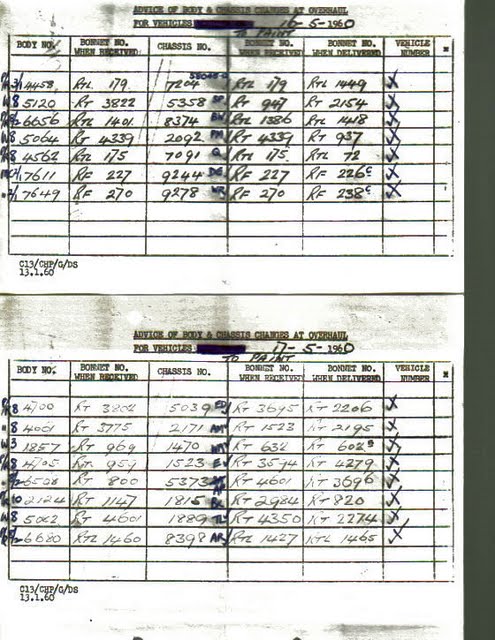 ADVICE OF BODY & CHASSIS CHANGES AT OVERHAUL
FOR VEHICLES 16-5-1960
TO PAINT
BODY NO. BONNET NO. WHEN RECEIVED CHASSIS NO. BONNET NO. WHEN RECEIVED BONNET NO. WHEN DELIVERED VEHICLE NUMBER
4458 RTL 179 7204 RTL 179 RTL 1449 X
W8 5120 RT 3822 5358 SP RT 947 RT 2154 X
6656 RTL 1401 8374 BW RTL 1386 RTL 1418 X
W8 5064 RT 4339 2092 PM RT 4339 RT 937 X
8 4562 RTL 175 7091 Q RTL 175 RTL 72 X
7611 RF 227 9244 DG RF 227 RF 226c X
7649 RF 270 9278 WR RF 270 RF 238c X
C13/CHP/G/DS
13.1.60
ADVICE OF BODY & CHASSIS CHANGES AT OVERHAUL
FOR VEHICLES 17-5-1960
TO PAINT
BODY NO. BONNET NO. WHEN RECEIVED CHASSIS NO. BONNET NO. WHEN RECEIVED BONNET NO. WHEN DELIVERED VEHICLE NUMBER
8 4700 RT 3802 5039 ED RT 3695 RT 2206 X
8 4061 RT 3775 2171 RT 1523 RT 2195 X
W3 1857 RT 969 1470 RT 632 RT 602 X
8 4705 RT 959 1523 RT 3574 RT 4279 X
6508 RT 800 5373 RT 4601 RT 3696 X
10 2124 RT 1147 1815 RT 2984 RT 820 X
W8 5062 RT 4601 1889 TL RT 4350 RT 2274 X
6680 RTL 1460 8398 AR RTL 1427 RTL 1465 X
C13/CHP/G/DS
13.1.60